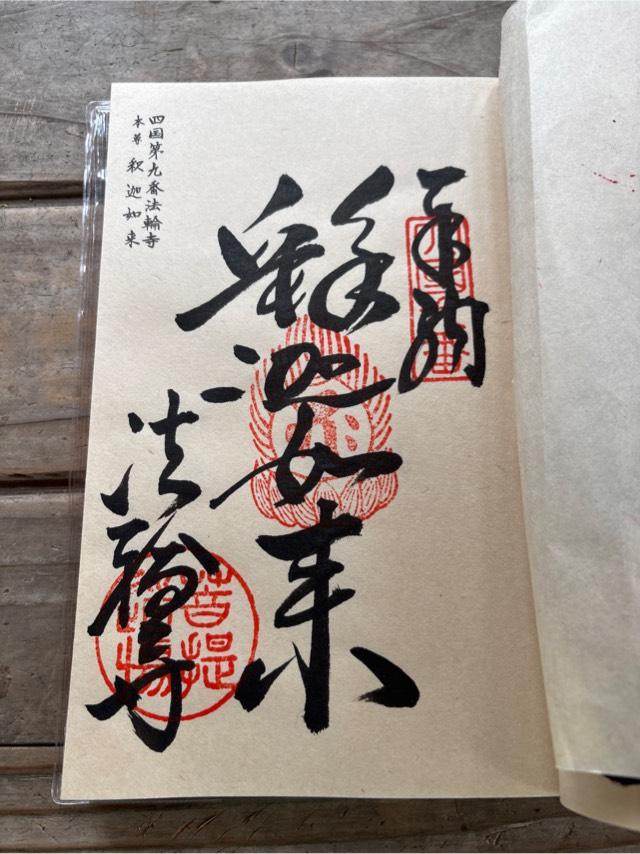 奉納
釋迦如来
法輪寺
菩提
四国第九番法輪寺
本尊 釈迦如来